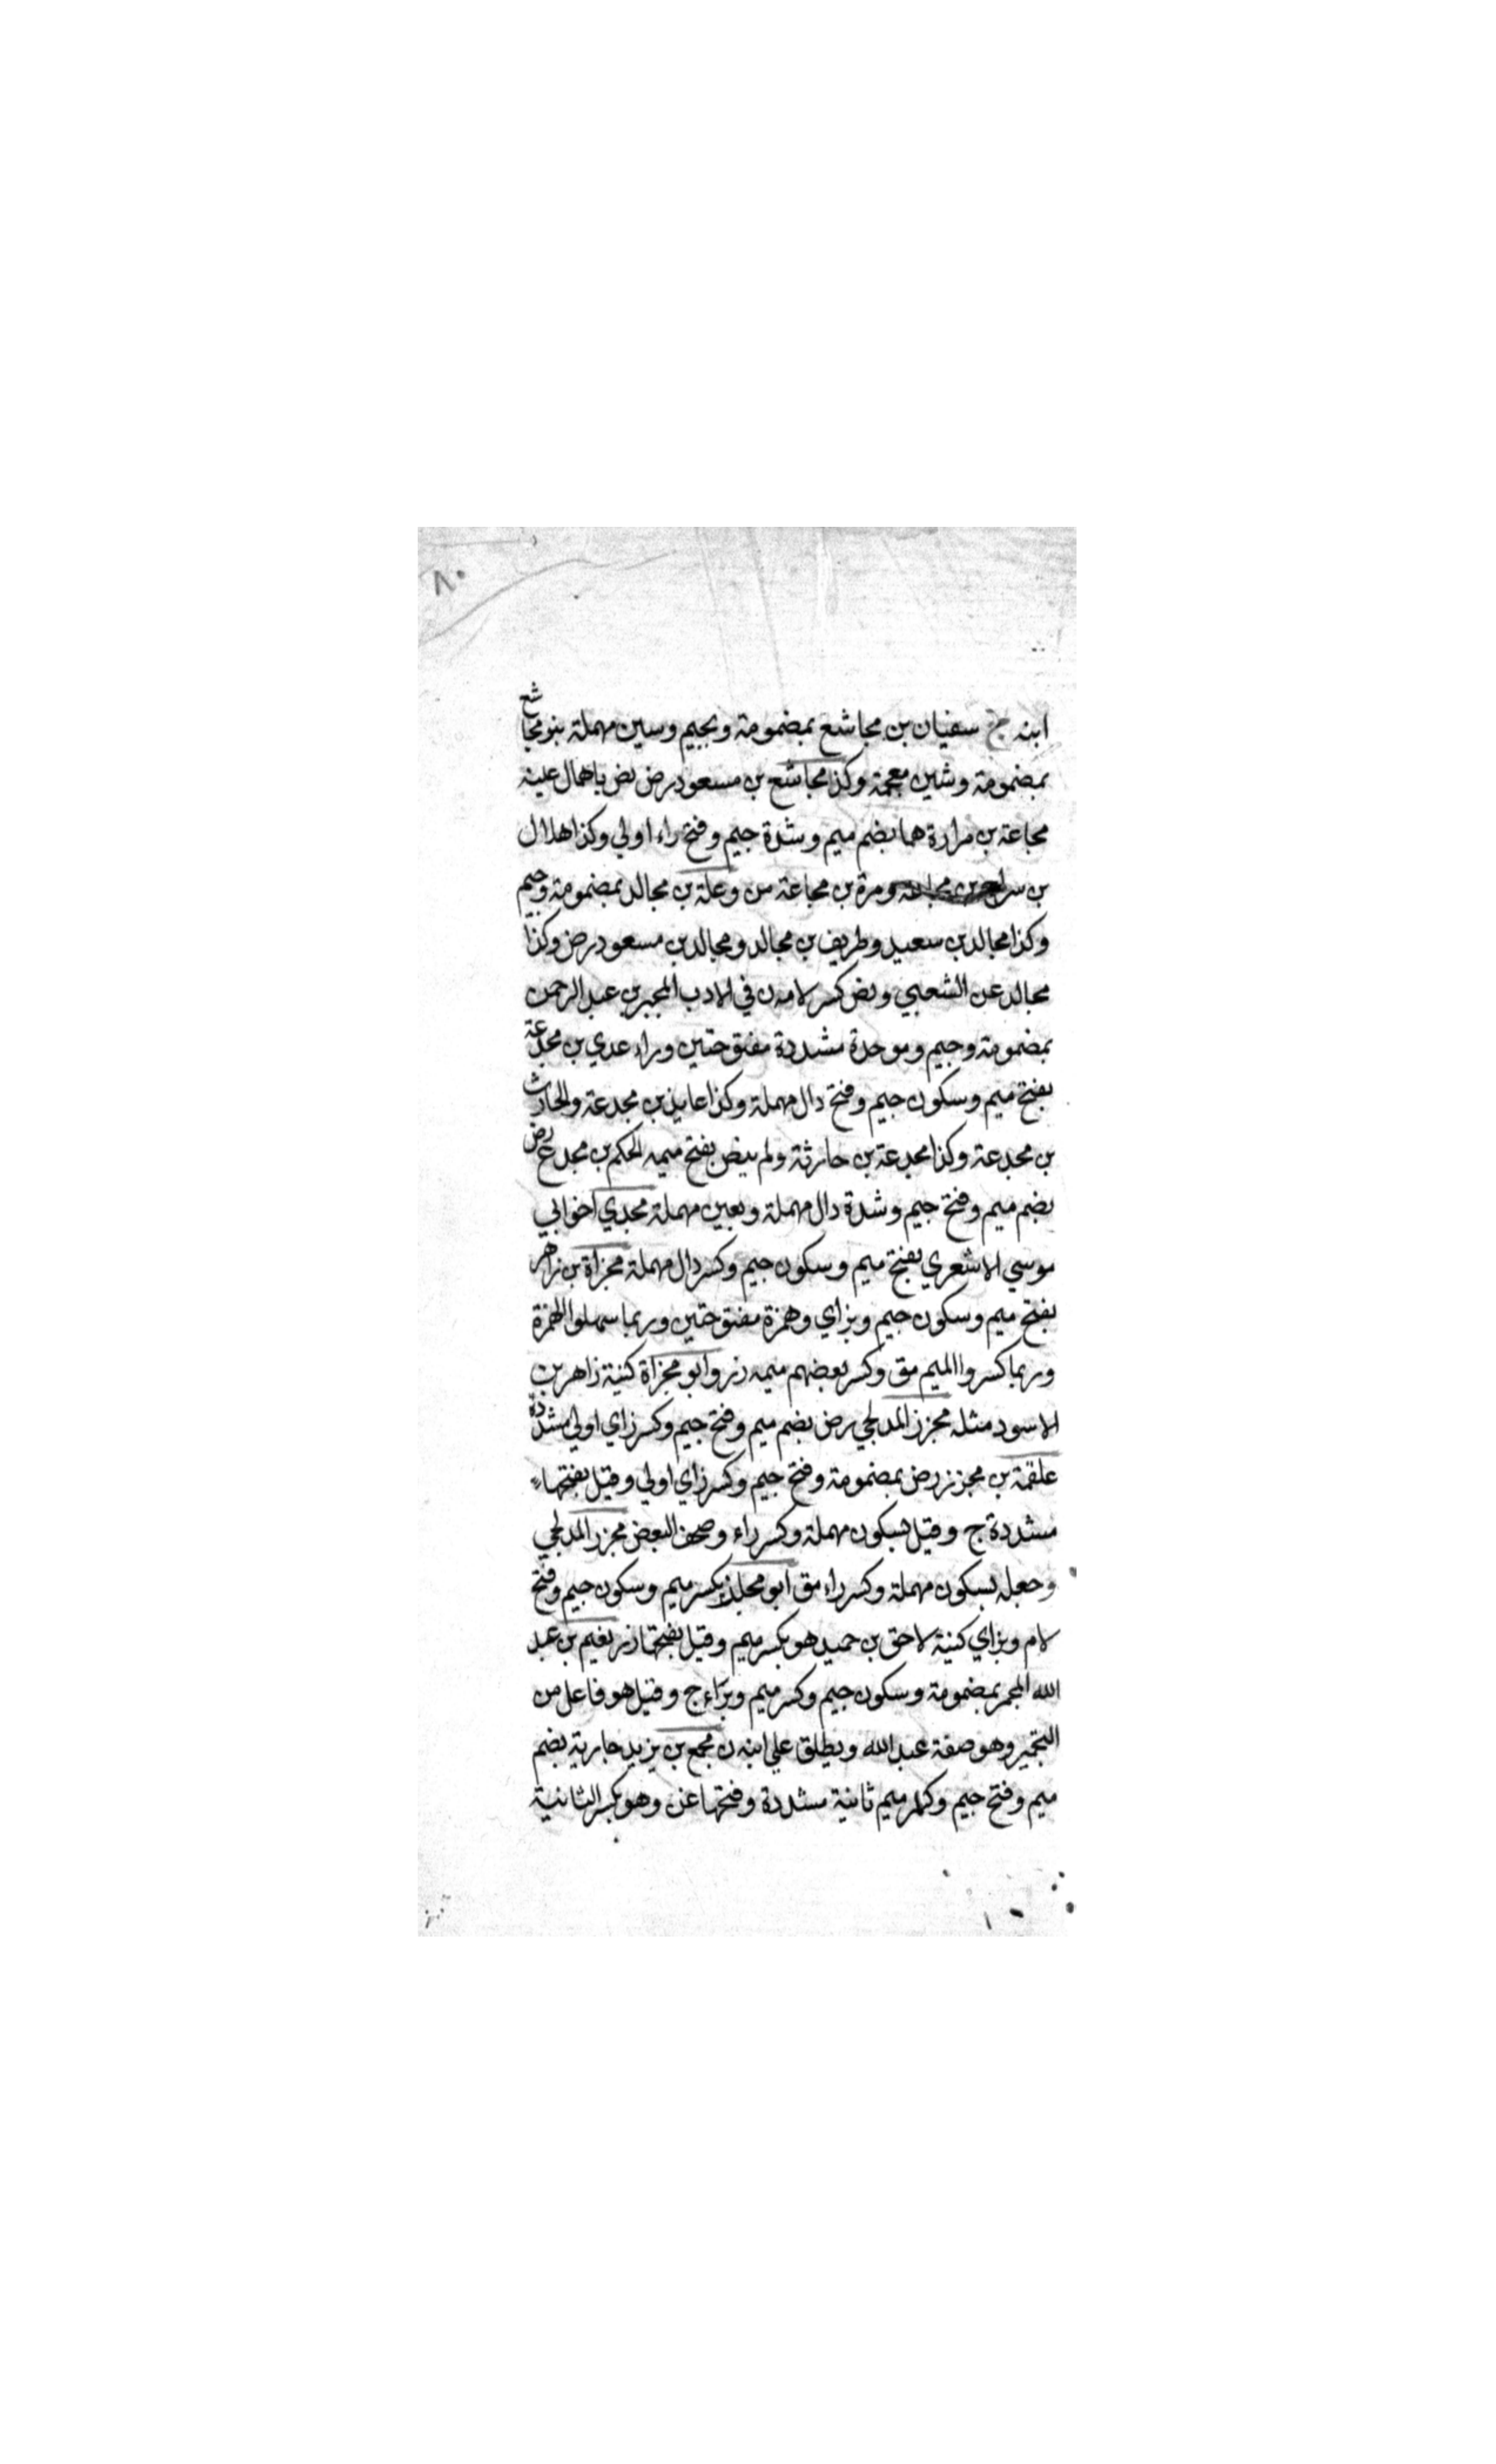 ٨٠
ابنه ج سفيان بن مجاشع بمضمومة وبجيم وسين مهملة بنو مجاشع
بمضمومة وشين معجمة وكذا مجاشع بن مسعود رض نض باهمال عينه
مجاعة بن مرارة هما بضم ميم وشدة جيم وفتح راء اولي وكذا هلال
بن سراج بن مجاعة ومرة بن مجاعة من وعلة بن مجالد بمضمومة وجيم
وكذا مجالد بن سعيد وطريف بن مجالد ومجالد بن مسعود رض وكذا
مجالد عن الشعبي ونض كسر لامه ن في الادب المجبر بن عبد الرحمن
بمضمومة وجيم وموحدة مشددة مفتوحتين وراء عدي بن مجدعة
بفتح ميم وسكون جيم وفتح دال مهملة وكذا عايذ بن مجدعة والحارث
بن مجدعة وكذا مجدعة بن حارثة ولم ينض بفتح ميمه الحكم بن مجدع رض
بضم ميم وفتح جيم وشدة دال مهملة وبعين مهملة مجدي اخوابي
موسي الاشعري بفتح ميم وسكون جيم وكسر دال مهملة مجزاة بن زاهر
بفتح ميم وسكون جيم وبزاي وهمزة مفتوحتين وربما سهلوا الهمزة
وربما كسروا الميم مق وكسر بعضهم ميمه زر وابو مجزاة كنية زاهر بن
الاسود مثله مجزز المدلجي رض بضم ميم وفتح جيم وكسر زاي اولي مشددة
علقمة بن مجزز رض بمضمومة وفتح جيم وكسر زاي اولي وقيل بفتحها
مشددة ج وقيل بسكون مهملة وكسر راء وصحف البعض مجزر المدلجي
وجعله بسكون مهملة وكسر راء مق ابو مجلز بكسر ميم وسكون جيم وفتح
لام وبزاي كنية لاحق بن حميد هو بكسر ميم وقيل بفتحها زر نعيم بن عبد
الله المجمر بمضمومة وسكون جيم وكسر ميم وبراء ج وقيل هو فاعل من
التجمير وهو صفة عبد الله ويطلق علي ابنه ن مجمع بن يزيد جارية بضم
ميم وفتح جيم وكسر ميم ثانية مشددة وفتحها عن وهو بكسر الثانية